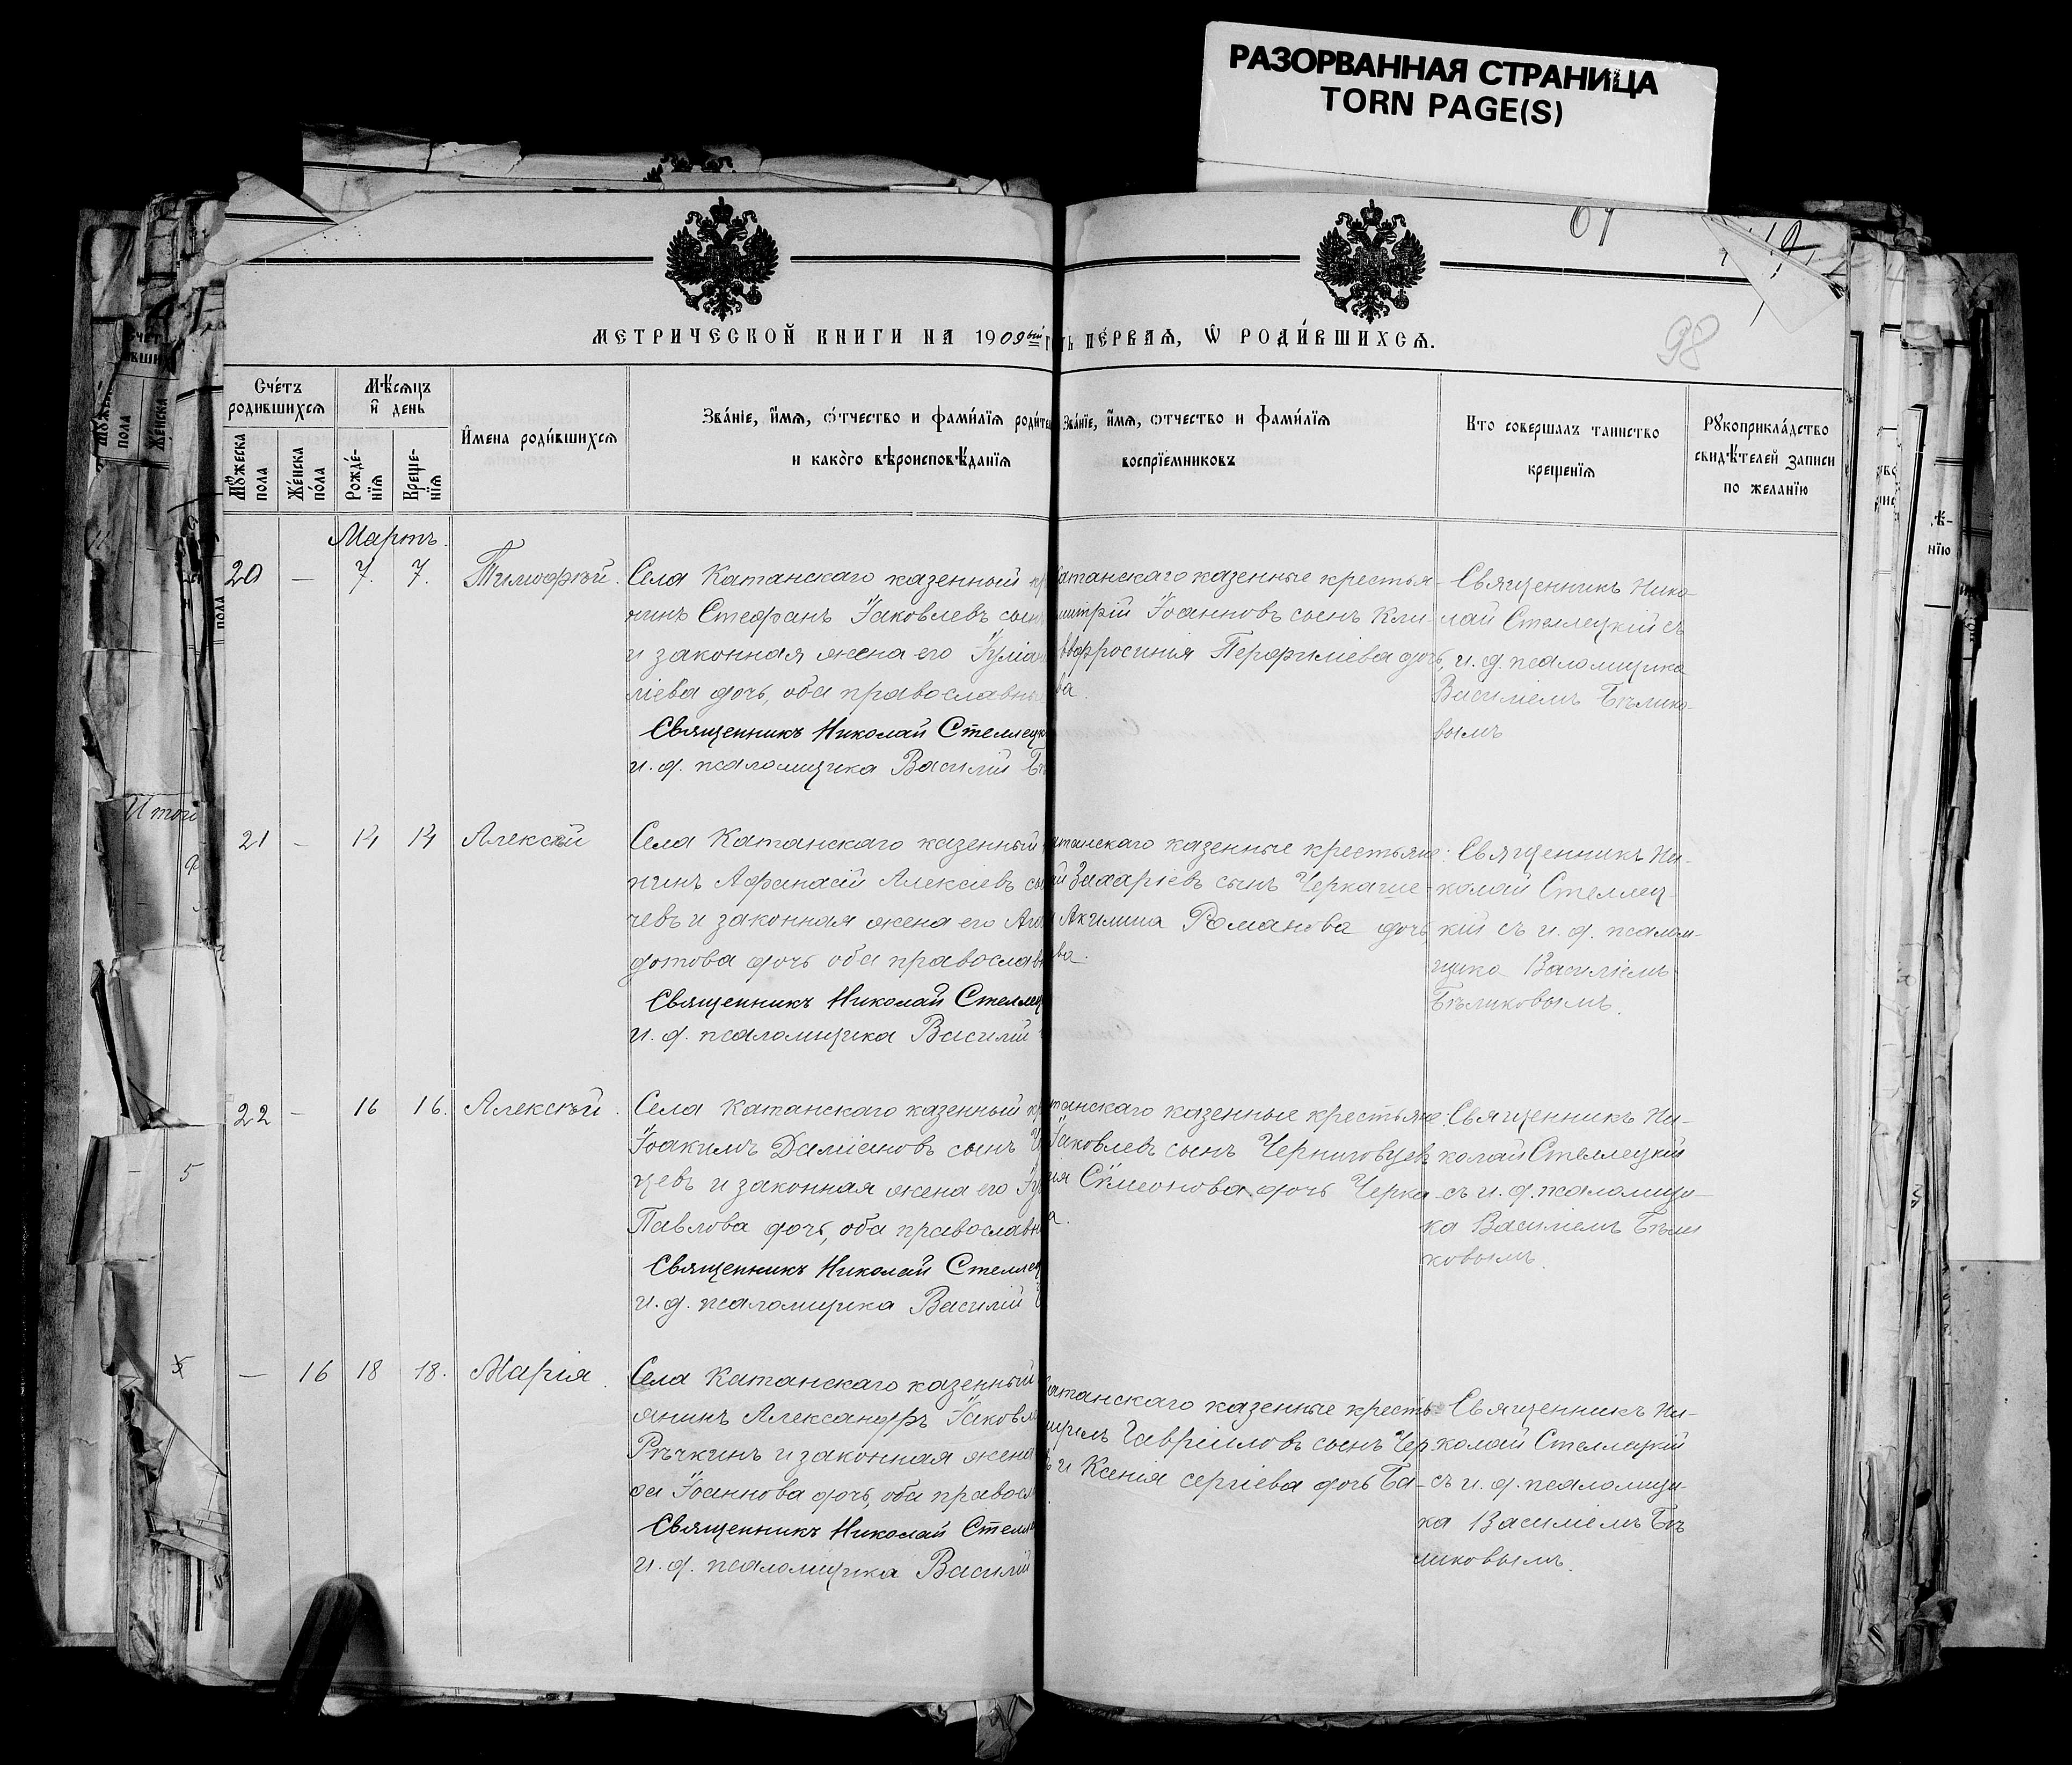 РАЗОРВАННАЯ СТРАНИЦА
TORN PAGE(S)
МЕТРИЧЕСКОЙ КНИГИ НА 1909ый
ПЕРВАЯ, Ѡ РОДИВШИХСЯ.
98
Счетъ родившихся
Мужеска пола
Женска пола
Мѣсяцъ и день
Рожденія
Крещенія
Имена родившихся
Званіе, имя, отчество и фамилія
и какого вѣроисповѣданія
Званіе, имя, отчество и фамилія
воспріемниковъ
Кто совершалъ таинство
крещенія
Рукоприкладство
свидѣтелей записи
по желанію
Мартъ.
20 — 7. 7. Тимофѣй.
Села Катанскаго казенный
нинъ Стефанъ Іаковлевъ сынъ
и законная жена его
ліева дочь, оба православны
Священникъ Николай Стеллецк
и. д. псаломщика Василій
атанскаго казенные крестья-
митрій Іоанновъ сынъ Кли-
Евфросинія Перфиліева дочь,
ва.
Священникъ Нико-
лай Стеллецкій съ
и. д. псаломщика
Василіемъ Бѣлико-
вымъ
21 — 14 14 Алексѣй
Села Катанскаго казенный
нинъ Афанасій Алексіевъ
чевъ и законная жена его
дотова дочь оба православн
Священникъ Николай Стеллец
и. д. псаломщика Василій
атанскаго казенные крестьяне:
Захаріевъ сынъ Черкаше-
Акилина Романова дочь
ва.
Священникъ Ни-
колай Стеллец-
кій съ и. д. псалом-
щика Василіемъ
Бѣликовымъ.
22 — 16 16. Алексѣй.
Села Катанскаго казенный
Іоакимъ Даміановъ сынъ
цевъ и законная жена его
Павлова дочь, оба православн
Священникъ Николай Стеллец
и. д. псаломщика Василій
танскаго казенные крестьяне
Іаковлевъ сынъ Черниговцевъ
Сѵмеонова дочь Черка-
а.
Священникъ Ни-
колай Стеллецкій
съ и. д. псаломщи-
ка Василіемъ Бѣли
ковымъ.
— 16 18 18. Марія.
Села Катанскаго казенный
янинъ Александръ Іаковл
Рѣчкинъ и законная жена
Іоаннова дочь, оба правосл
Священникъ Николай Стелл
и. д. псаломщика Василій
атанскаго казенные кресть-
Гавріиловъ сынъ Чер
и Ксенія Сергіева дочь Ба-
Священникъ Ни-
колай Стеллецкій
съ и. д. псаломщи-
ка Василіемъ Бѣ
ликовымъ.